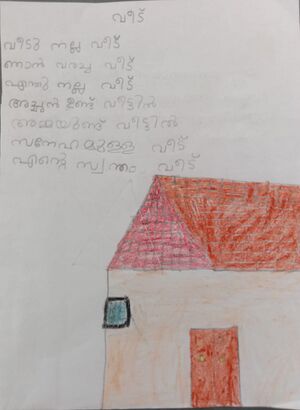 വീട്
വീടു നല്ല വീട്
ണാൻ വരച്ച വീട്
എന്തു നല്ല വീട്
അച്ഛൻ ഉണ്ട് വീട്ടിൽ
അമ്മയുണ്ട് വീട്ടിൽ
സനേഹമുള്ള വീട്
എന്റെ സ്വന്തം വീട്